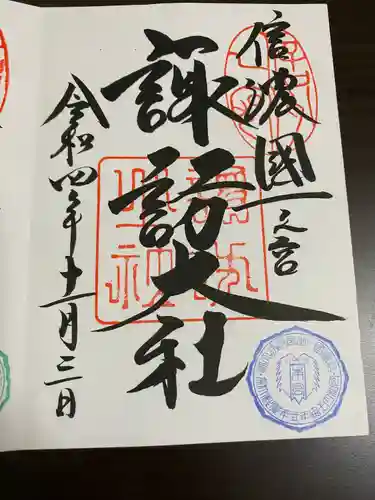 信濃國一之宮
諏訪大社
令和四年十一月三日